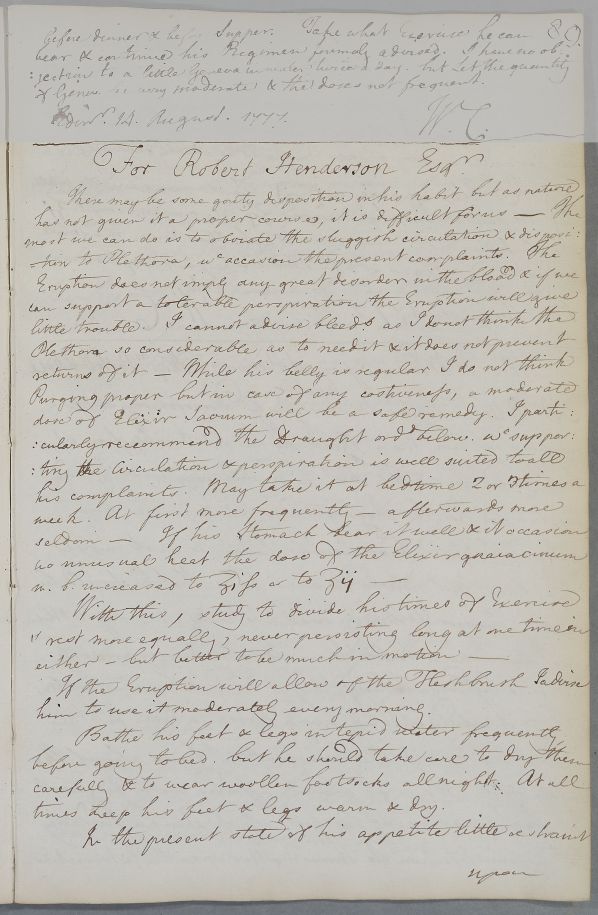 before dinner & before Supper. Take what Exercise he can
bear & continue his Regimen formerly advised. I have no ob
:jection to a little Geneva in water twice a day. but Let the quantity
of Geneva be very moderate & the doses not frequent.
Edinr. 14. August. 1777. W. C.
For Robert Henderson Esqr.
There may be some gouty disposition in his habit but as nature
has not given it a proper course, it is difficult for us — The
most we can do is to obviate the sluggish circulation & disposi:
:tion to Plethora, wc. occasion the present complaints. The
Eruption does not imply any great desorder in the blood & if we
can support a tolerable perspiration the Eruption will give
little trouble. I cannot advise bleeds as I do not think the
Plethora so considerable as to need it & it does not prevent
returns of it — While his belly is regular I do not think
Purging proper but in case of any costiveness, a moderate
dose of Elixir Sacrum will be a safe remedy. I parti:
:cularly reccommend the Draught ordd. below. wc. suppor:
:ting the circulation & perspiration is well suited to all
his complaints. May take it at bedtime 2 or 3 times a
week. At first more frequently — afterwards more
seldom — If his Stomach bear it well & it occasion
no unusual heat the dose of the Elixir guaiacinum
m. b. increased to ʒifs or to ʒij —
With this, study to divide his times of Exercise
& rest more equally, never persisting long at one time in
either — but better to be much in motion —
If the Eruption will allow of the Fleshbrush I advise
him to use it moderately every morning.
Bathe his feet & legs in tepid water frequently
before going to bed. but he should take care to dry them
carefully & to wear woollen footsocks all night. At all
times keep his feet & legs warm & dry.
In the present state of his appetite little restraint
upon